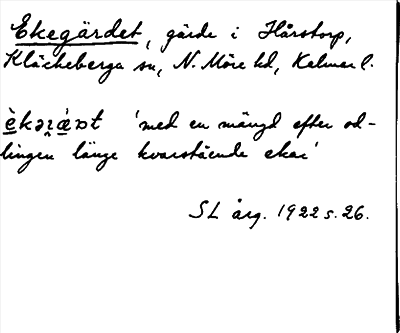 Ekegärdet, gärde i Hårstorp,
Kläckeberga sn, N. Möre hd, Kalmar l.
'med en mängd efter od-
lingen länge kvarstående ekar'
SL årg. 1922 s. 26.